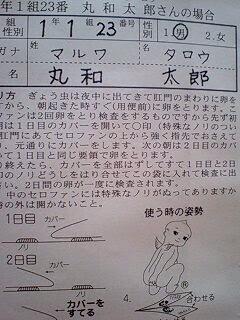 年1組23番 丸 和 太 郎さんの場合
性別 1年1組23番 性別 1.男 2.女
ガナ マルワ タロウ
氏名 丸和 太郎
肛門 ぎょう虫は夜中に出てきて肛門のまわりに卵を
から、朝起きた時すぐ(用便前)に卵をとります。こ
ファンは2回卵をとり検査をするものですから先ず初
は1日目のカバーを開いて○印(特殊なノリのつい
肛門にあてセロファンの上から強く指先でおさえて
り、元通りにカバーをします。次の朝は2日目のカバ
て1日目と同じ要領で卵をとります。
り終えたら、カバーを全部はずしてすて1日目と2日
内のノリどうしをはり合せてこの袋に入れて検査に出
さい。2日間の卵が一度に検査されます。
中のセロファンには特殊なノリがぬってありますか
時の外は開かないこと。
1日目 カバー
ノリ
2日目 カバー
ノリ
カバーを
すてる
使う時の姿勢
4.
合わせる